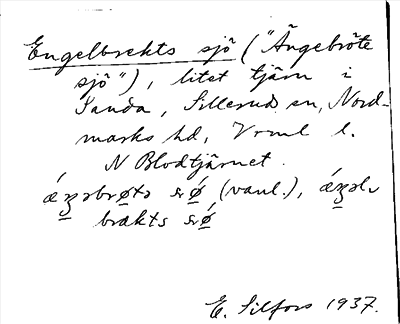 Engelbrekts sjö ("Ängebröte
sjö"), litet tjärn i
Sanda, Sillerud sn, Nord-
marks hd, Vrml l.
N Blodtjärnet.
(vanl.),
E. Silfors 1937.